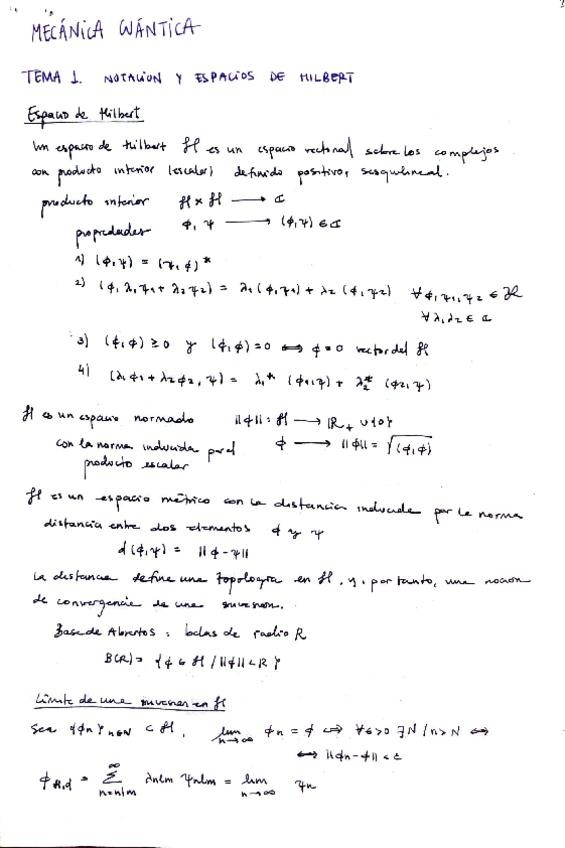 MECÁNICA CUÁNTICA
TEMA 1. NOTACION Y ESPACIOS DE HILBERT
Espacio de Hilbert
Un espacio de Hilbert ℋ es un espacio vectorial sobre los complejos
con producto interior (escalar) definido positivo, sesquilineal.
producto interior ℋ × ℋ ⟶ ℂ
ϕ, ψ ⟶ (ϕ,ψ) ∈ ℂ
propiedades
1) (ϕ,ψ) = (ψ,ϕ)*
2) (ϕ, λ₁ψ₁ + λ₂ψ₂) = λ₁(ϕ,ψ₁) + λ₂(ϕ,ψ₂) ∀ϕ,ψ₁,ψ₂ ∈ ℋ
∀λ₁λ₂ ∈ ℂ
3) (ϕ,ϕ) ≥ 0 y (ϕ,ϕ) = 0 ⟺ ϕ = 0 vector del ℋ
4) (λ₁ϕ₁ + λ₂ϕ₂, ψ) = λ₁* (ϕ₁,ψ) + λ₂* (ϕ₂,ψ)
ℋ es un espacio normado ||ϕ|| : ℋ ⟶ ℝ₊ ∪ {0}
con la norma inducida por el ϕ ⟶ ||ϕ|| = √(ϕ,ϕ)
producto escalar
ℋ es un espacio métrico con la distancia inducida por la norma
distancia entre dos elementos ϕ y ψ
d(ϕ,ψ) = ||ϕ-ψ||
La distancia define una topología en ℋ, y, por tanto, una noción
de convergencia de una sucesion.
Base de Abiertos : bolas de radio R
B(R) = {ϕ ∈ ℋ / ||ϕ|| < R}
Límite de una sucesion en ℋ
Sea {ϕn}n∈ℕ ⊂ ℋ, lim n→∞ ϕn = ϕ ⟺ ∀ε>0 ∃N / n>N ⟺
⟺ ||ϕn-ϕ|| < ε
= ∞ Σ n=nlm λnlm ψnlm = lim n→∞ ψn